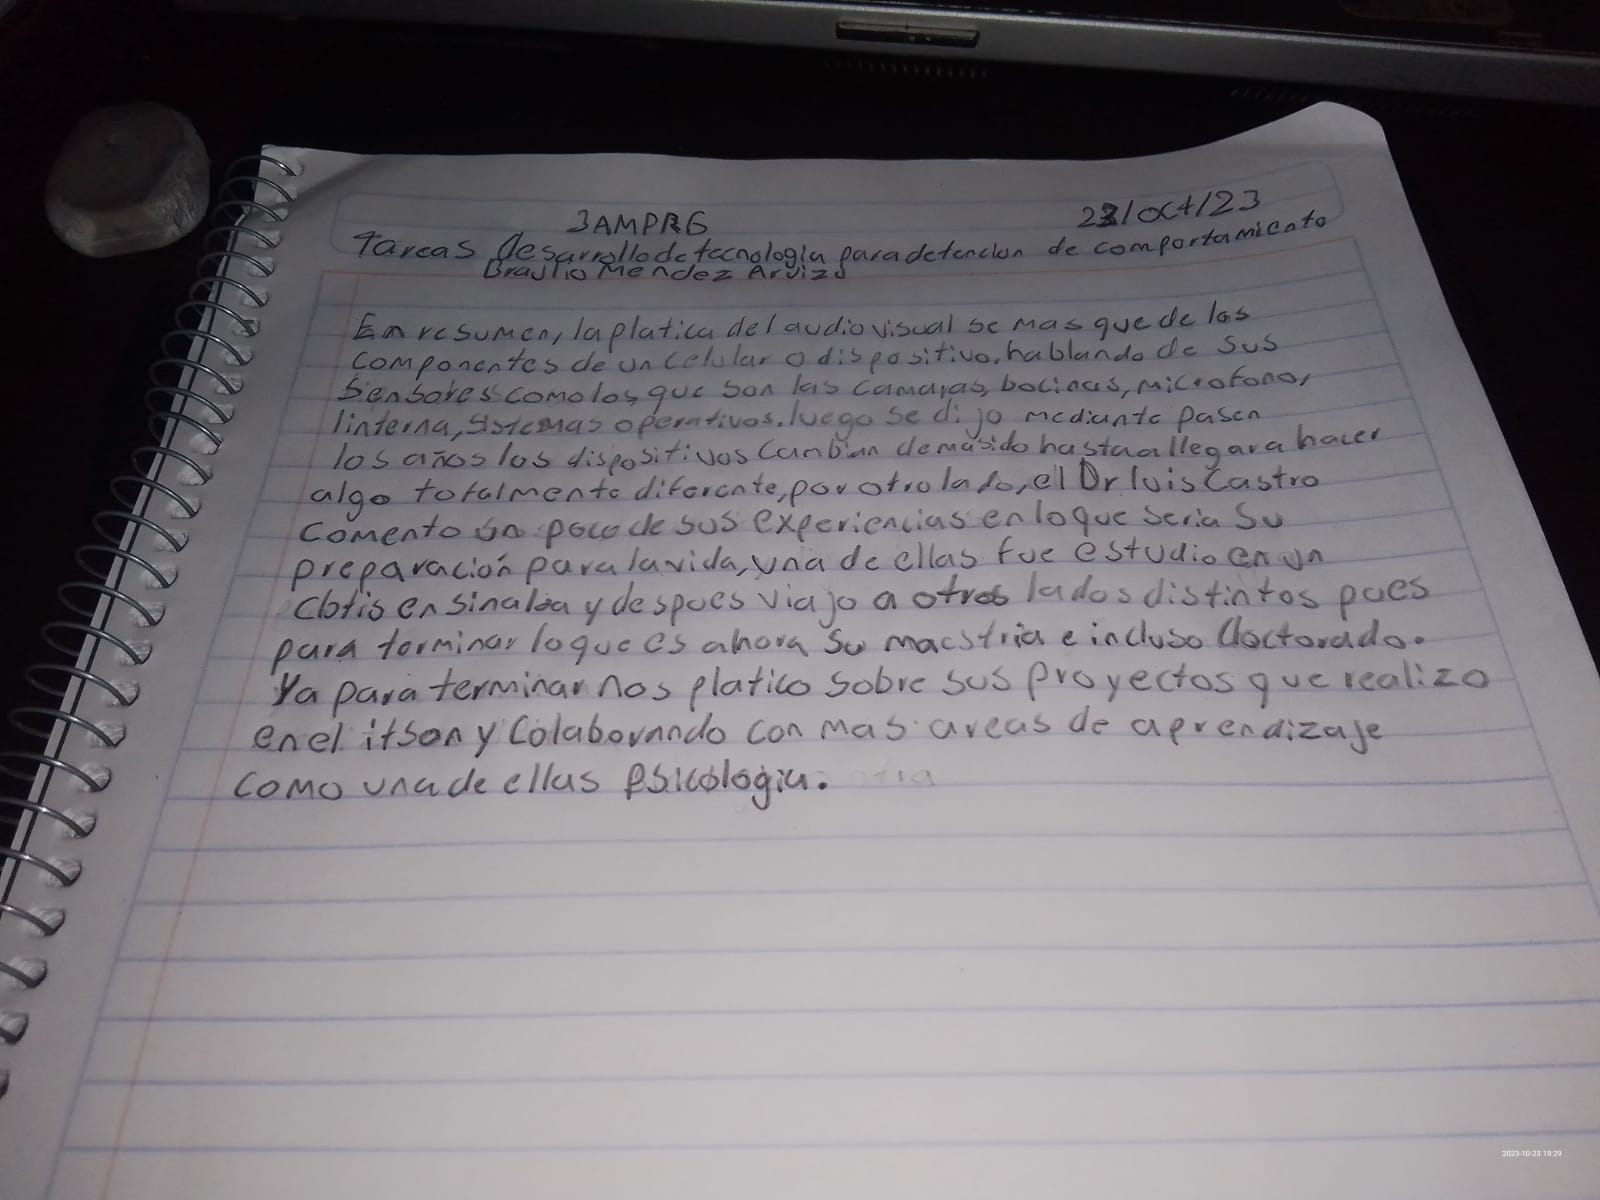 3AMPRG
23/Oct/23
Tareas Desarrollo de tecnologia para detencion de comportamiento
Braulio Mendez Arvizu
En resumen, la platica del audiovisual se mas que de los
componentes de un celular o dispositivo, hablando de sus
sensores como los que son las camaras, bocinas, microfono,
linterna, sistemas operativos. luego se dijo mediante pasen
los años los dispositivos cambian demasido hasta allegar a hacer
algo totalmente diferente, por otro lado, el Dr luis Castro
comento un poco de sus experiencias en lo que seria su
preparación para la vida, una de ellas fue estudio en un
Cbtis en sinaloa y despues viajo a otros lados distintos pues
para terminar lo que es ahora su maestria e incluso doctorado.
Ya para terminar nos platico sobre sus proyectos que realizo
en el itson y colaborando con mas areas de aprendizaje
como una de ellas psicologia.
2023-10-23 19:29